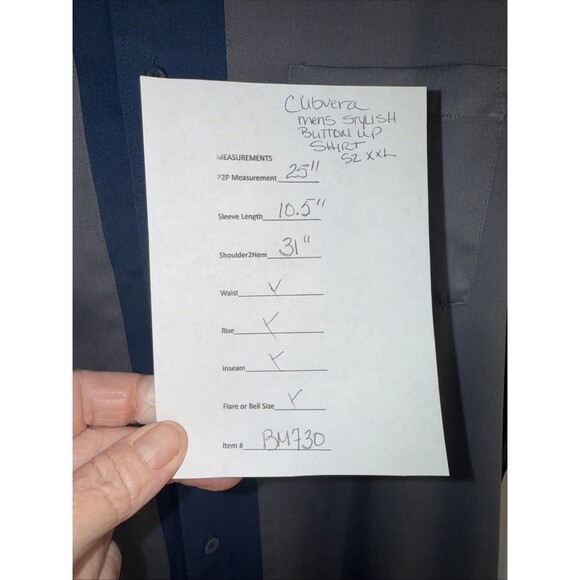 Cubvera
mens stylish
Button up
Shirt
Sz XXL
MEASUREMENTS
P2P Measurement 25"
Sleeve Length 10.5"
Shoulder2Hem 31"
Waist
Rise
Inseam
Flare or Bell Size
Item # BM730